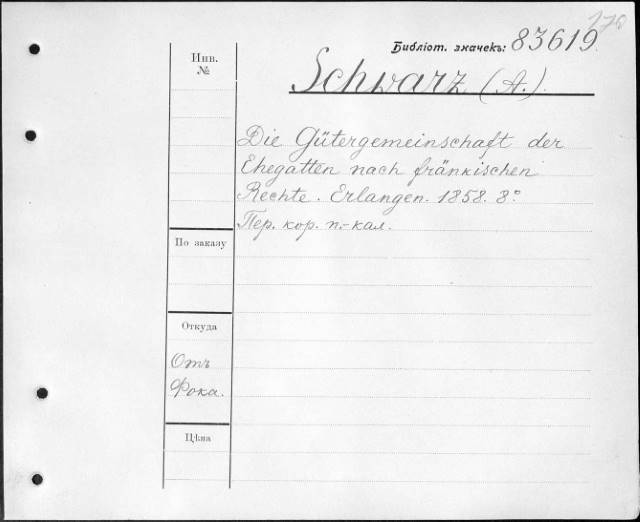 178
Библіот. значекъ: 83619
Инв.
№
Schwarz (A.).
Die Gütergemeinschaft der
Ehegatten nach fränkischen
Rechte. Erlangen. 1858. 8°
Пер. кор. п.-кал.
По заказу
Откуда
Отъ
Фока.
Цѣна